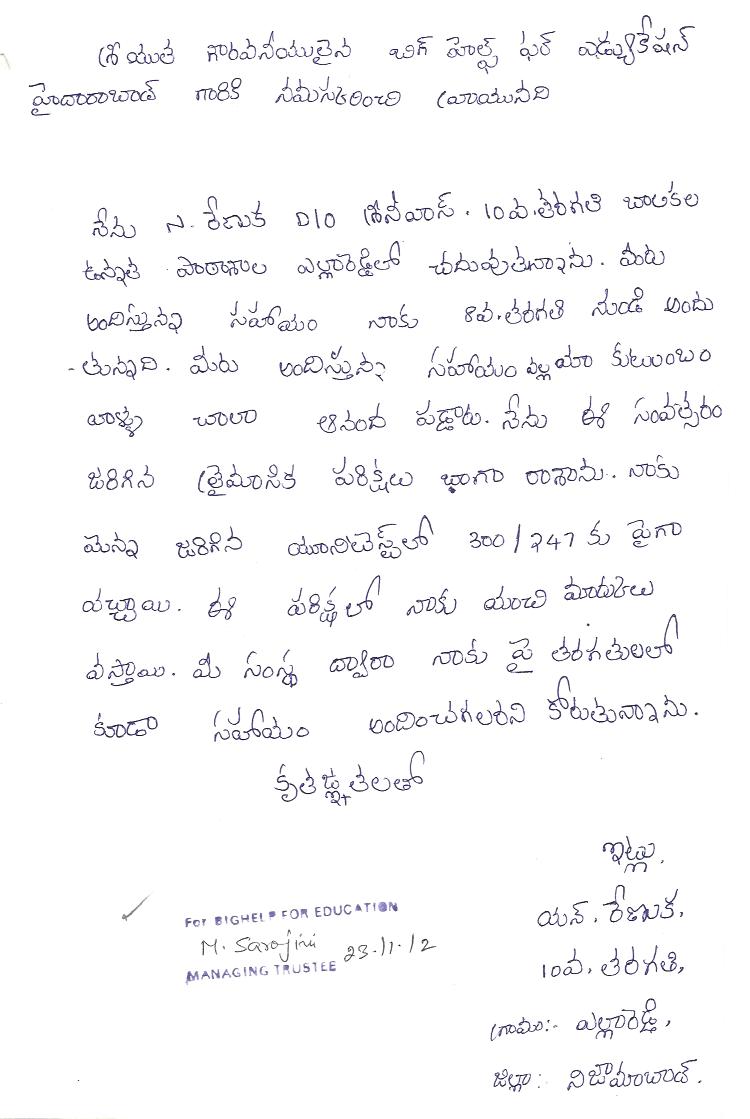 శ్రీయుత గౌరవనీయులైన బిగ్ హెల్ప్ ఫర్ ఎడ్యుకేషన్
హైదారాబాద్ గారికి నమస్కరించి వ్రాయునది
నేను N. రేణుక D/O శ్రీనివాస్. 10వ.తరగతి బాలికల
ఉన్నత పాఠాశాల ఎల్లారెడ్డిలో చదువుతున్నాను. మీరు
అందిస్తున్న సహాయం నాకు 8వ.తరగతి నుండి అందు
-తున్నది. మీరు అందిస్తున్న సహాయం వల్ల మా కుటుంబం
వాళ్ళు చాలా ఆనంద పడ్డారు. నేను ఈ సంవత్సరం
జరిగిన త్రైమాసిక పరిక్షలు బాగా రాశాను. నాకు
మొన్న జరిగిన యూనిటెస్ట్‌లో 300/247 కు పైగా
వచ్చాయి. ఈ పరిక్షలో నాకు మంచి మారుకులు
వస్తాయి. మీ సంస్థ ద్వారా నాకు పై తరగతులలో
కూడా సహాయం అందించగలరని కోరుతున్నాను.
కృతజ్ఞతలతో
ఇట్లు,
యన్. రేణుక,
10వ. తరగతి,
గ్రామం:- ఎల్లారెడ్డి,
జిల్లా: నిజామాబాద్.
For BIGHELP FOR EDUCATION
M. Sarojini 23.11.12
MANAGING TRUSTEE